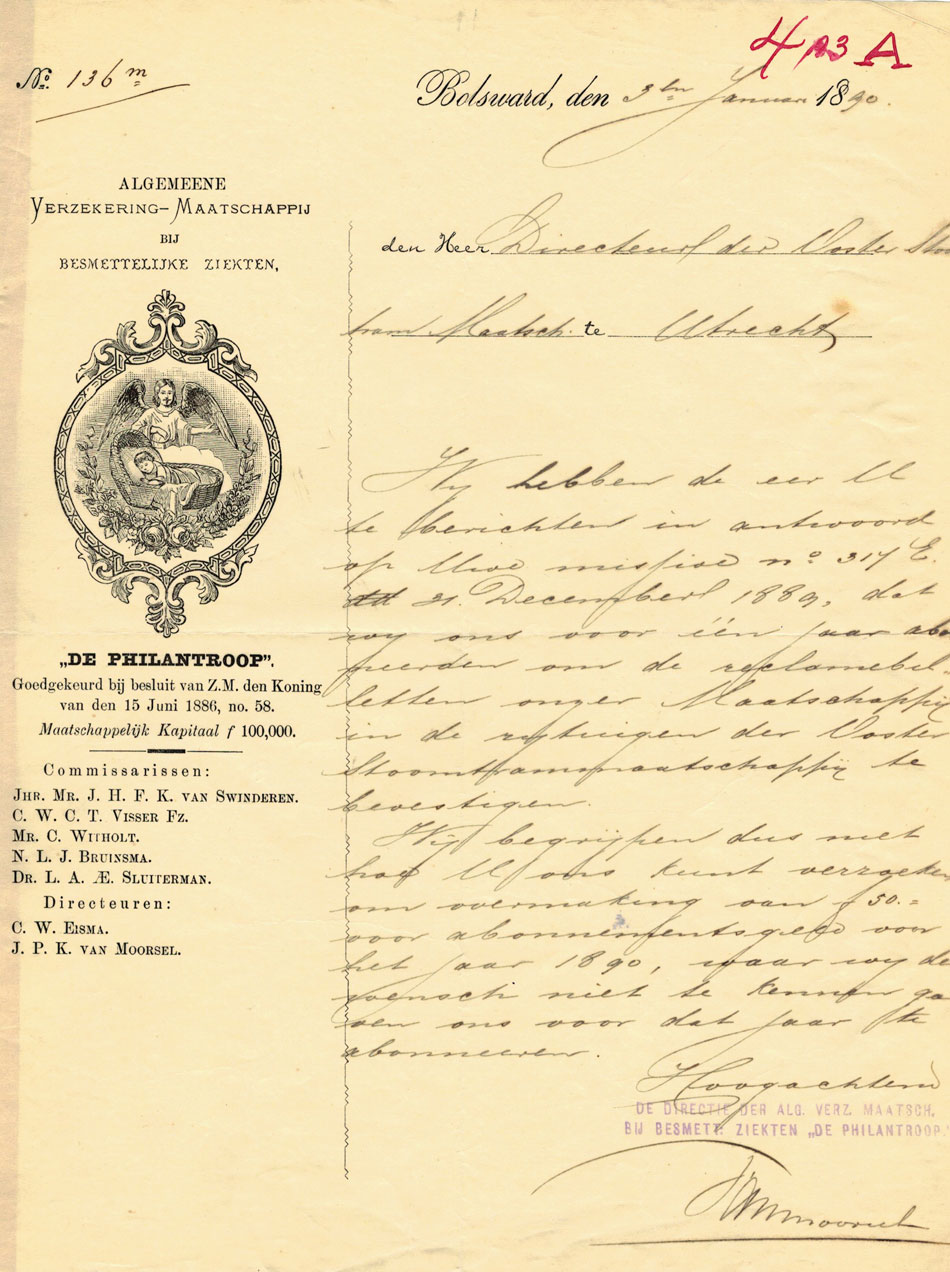 4 A3 A
No. 136 m
Bolsward, den 3en Januari 1890.
ALGEMEENE
VERZEKERING-MAATSCHAPPIJ
BIJ
BESMETTELIJKE ZIEKTEN,
„DE PHILANTROOP”.
Goedgekeurd bij besluit van Z.M. den Koning
van den 15 Juni 1886, no. 58.
Maatschappelijk Kapitaal f 100,000.
Commissarissen:
JHR. MR. J. H. F. K. VAN SWINDEREN.
C. W. C. T. VISSER FZ.
MR. C. WITHOLT.
N. L. J. BRUINSMA.
DR. L. A. Æ. SLUITERMAN.
Directeuren:
C. W. EISMA.
J. P. K. VAN MOORSEL.
den Heer Directeur der Ooster Stoo
tram Maatsch. te Utrecht
Wij hebben de eer U
te berichten in antwoord
op Uwe missive no. 317 E.
dd 21 December 1889, dat
wij ons voor één jaar abon
neerden om de reclamebil-
letten onzer Maatschappij
in de rijtuigen der Ooster
Stoomtrammaatschappij te
bevestigen.
Wij begrijpen dus niet
hoe U ons kunt verzoeken
om overmaking van f 50.=
voor abonnementsgeld voor
het jaar 1890, waar wij de
wensch niet te kennen ga
ven ons voor dat jaar te
abonneeren.
Hoogachtend
DE DIRECTIE DER ALG. VERZ. MAATSCH.
BIJ BESMETT. ZIEKTEN „DE PHILANTROOP.”